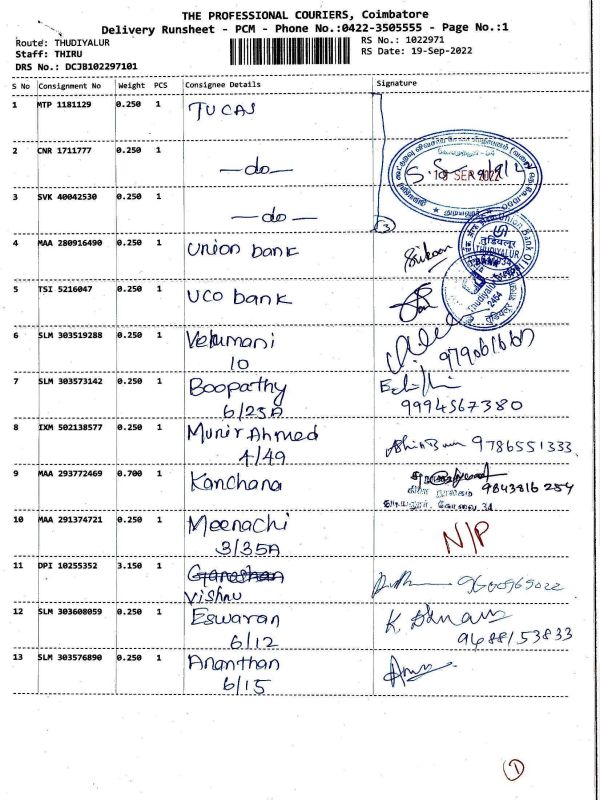 THE PROFESSIONAL COURIERS, Coimbatore
Delivery Runsheet - PCM - Phone No.:0422-3505555 - Page No.:1
Route: THUDIYALUR
RS No.: 1022971
Staff: THIRU
RS Date: 19-Sep-2022
DRS No.: DCJB102297101
S No Consignment No Weight PCS Consignee Details Signature
1 MTP 1181129 0.250 1 TUCAS
2 CNR 1711777 0.250 1 —do—
SEP 2022
3 SVK 40042530 0.250 1 —do—
3
4 MAA 280916490 0.250 1 Union bank
THUDIYALUR
5 TSI 5216047 0.250 1 UCO bank
2454
6 SLM 303519288 0.250 1 Velumani
10
7 SLM 303573142 0.250 1 Boopathy
6/25A 9994567380
8 IXM 502138577 0.250 1 Munir Ahmed 9786551333
4/49
9 MAA 293772469 0.700 1 Kanchana 9843816254
10 MAA 291374721 0.250 1 Meenachi N/P
3/35A
11 DPI 10255352 3.150 1 Ganeshan
Vishnu 9600965022
12 SLM 303608059 0.250 1 Eswaran
6/12 9688153833
13 SLM 303576890 0.250 1 Ananthan
6/15
1